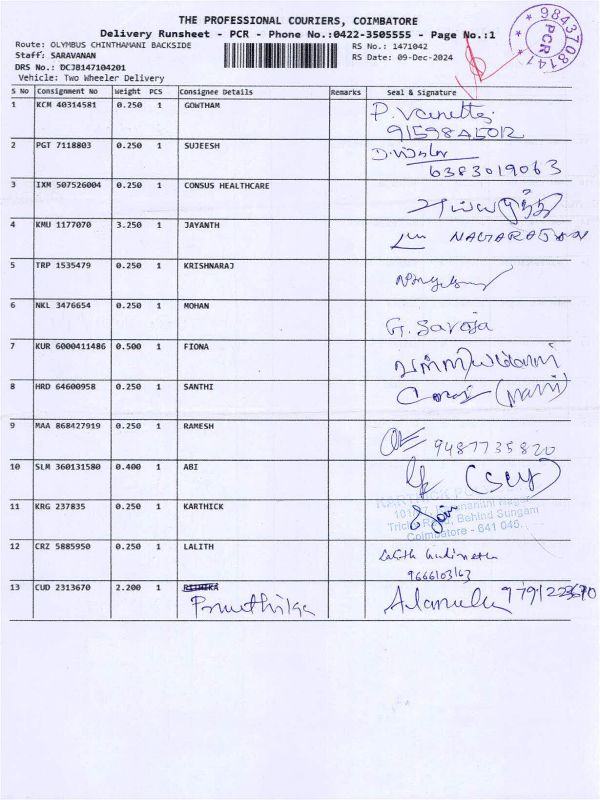 THE PROFESSIONAL COURIERS, COIMBATORE
Delivery Runsheet - PCR - Phone No.:0422-3505555 - Page No.:1
Route: OLYMBUS CHINTHAMANI BACKSIDE
RS No.: 1471042
Staff: SARAVANAN
RS Date: 09-Dec-2024
DRS No.: DCJB147104201
Vehicle: Two Wheeler Delivery
* 9843708147 *
PCR
S No Consignment No Weight PCS Consignee Details Remarks Seal & Signature
1 KCM 40314581 0.250 1 GOWTHAM
9159845012
2 PGT 7118803 0.250 1 SUJEESH
6383019063
3 IXM 507526004 0.250 1 CONSUS HEALTHCARE
4 KMU 1177070 3.250 1 JAYANTH NAGARAJAN
5 TRP 1535479 0.250 1 KRISHNARAJ
6 NKL 3476654 0.250 1 MOHAN G. Saroja
7 KUR 6000411486 0.500 1 FIONA
8 HRD 64600958 0.250 1 SANTHI (mani)
9 MAA 868427919 0.250 1 RAMESH 9487735820
10 SLM 360131580 0.400 1 ABI
11 KRG 237835 0.250 1 KARTHICK
Behind Sungam
Coimbatore - 641 045.
12 CRZ 5885950 0.250 1 LALITH Lalith
9666103163
13 CUD 2313670 2.200 1 RITHIKA
Pruthika